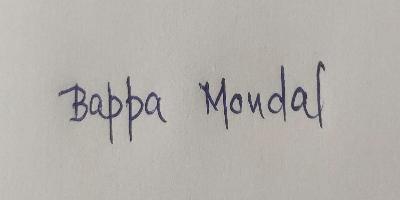 Bappa Mondal